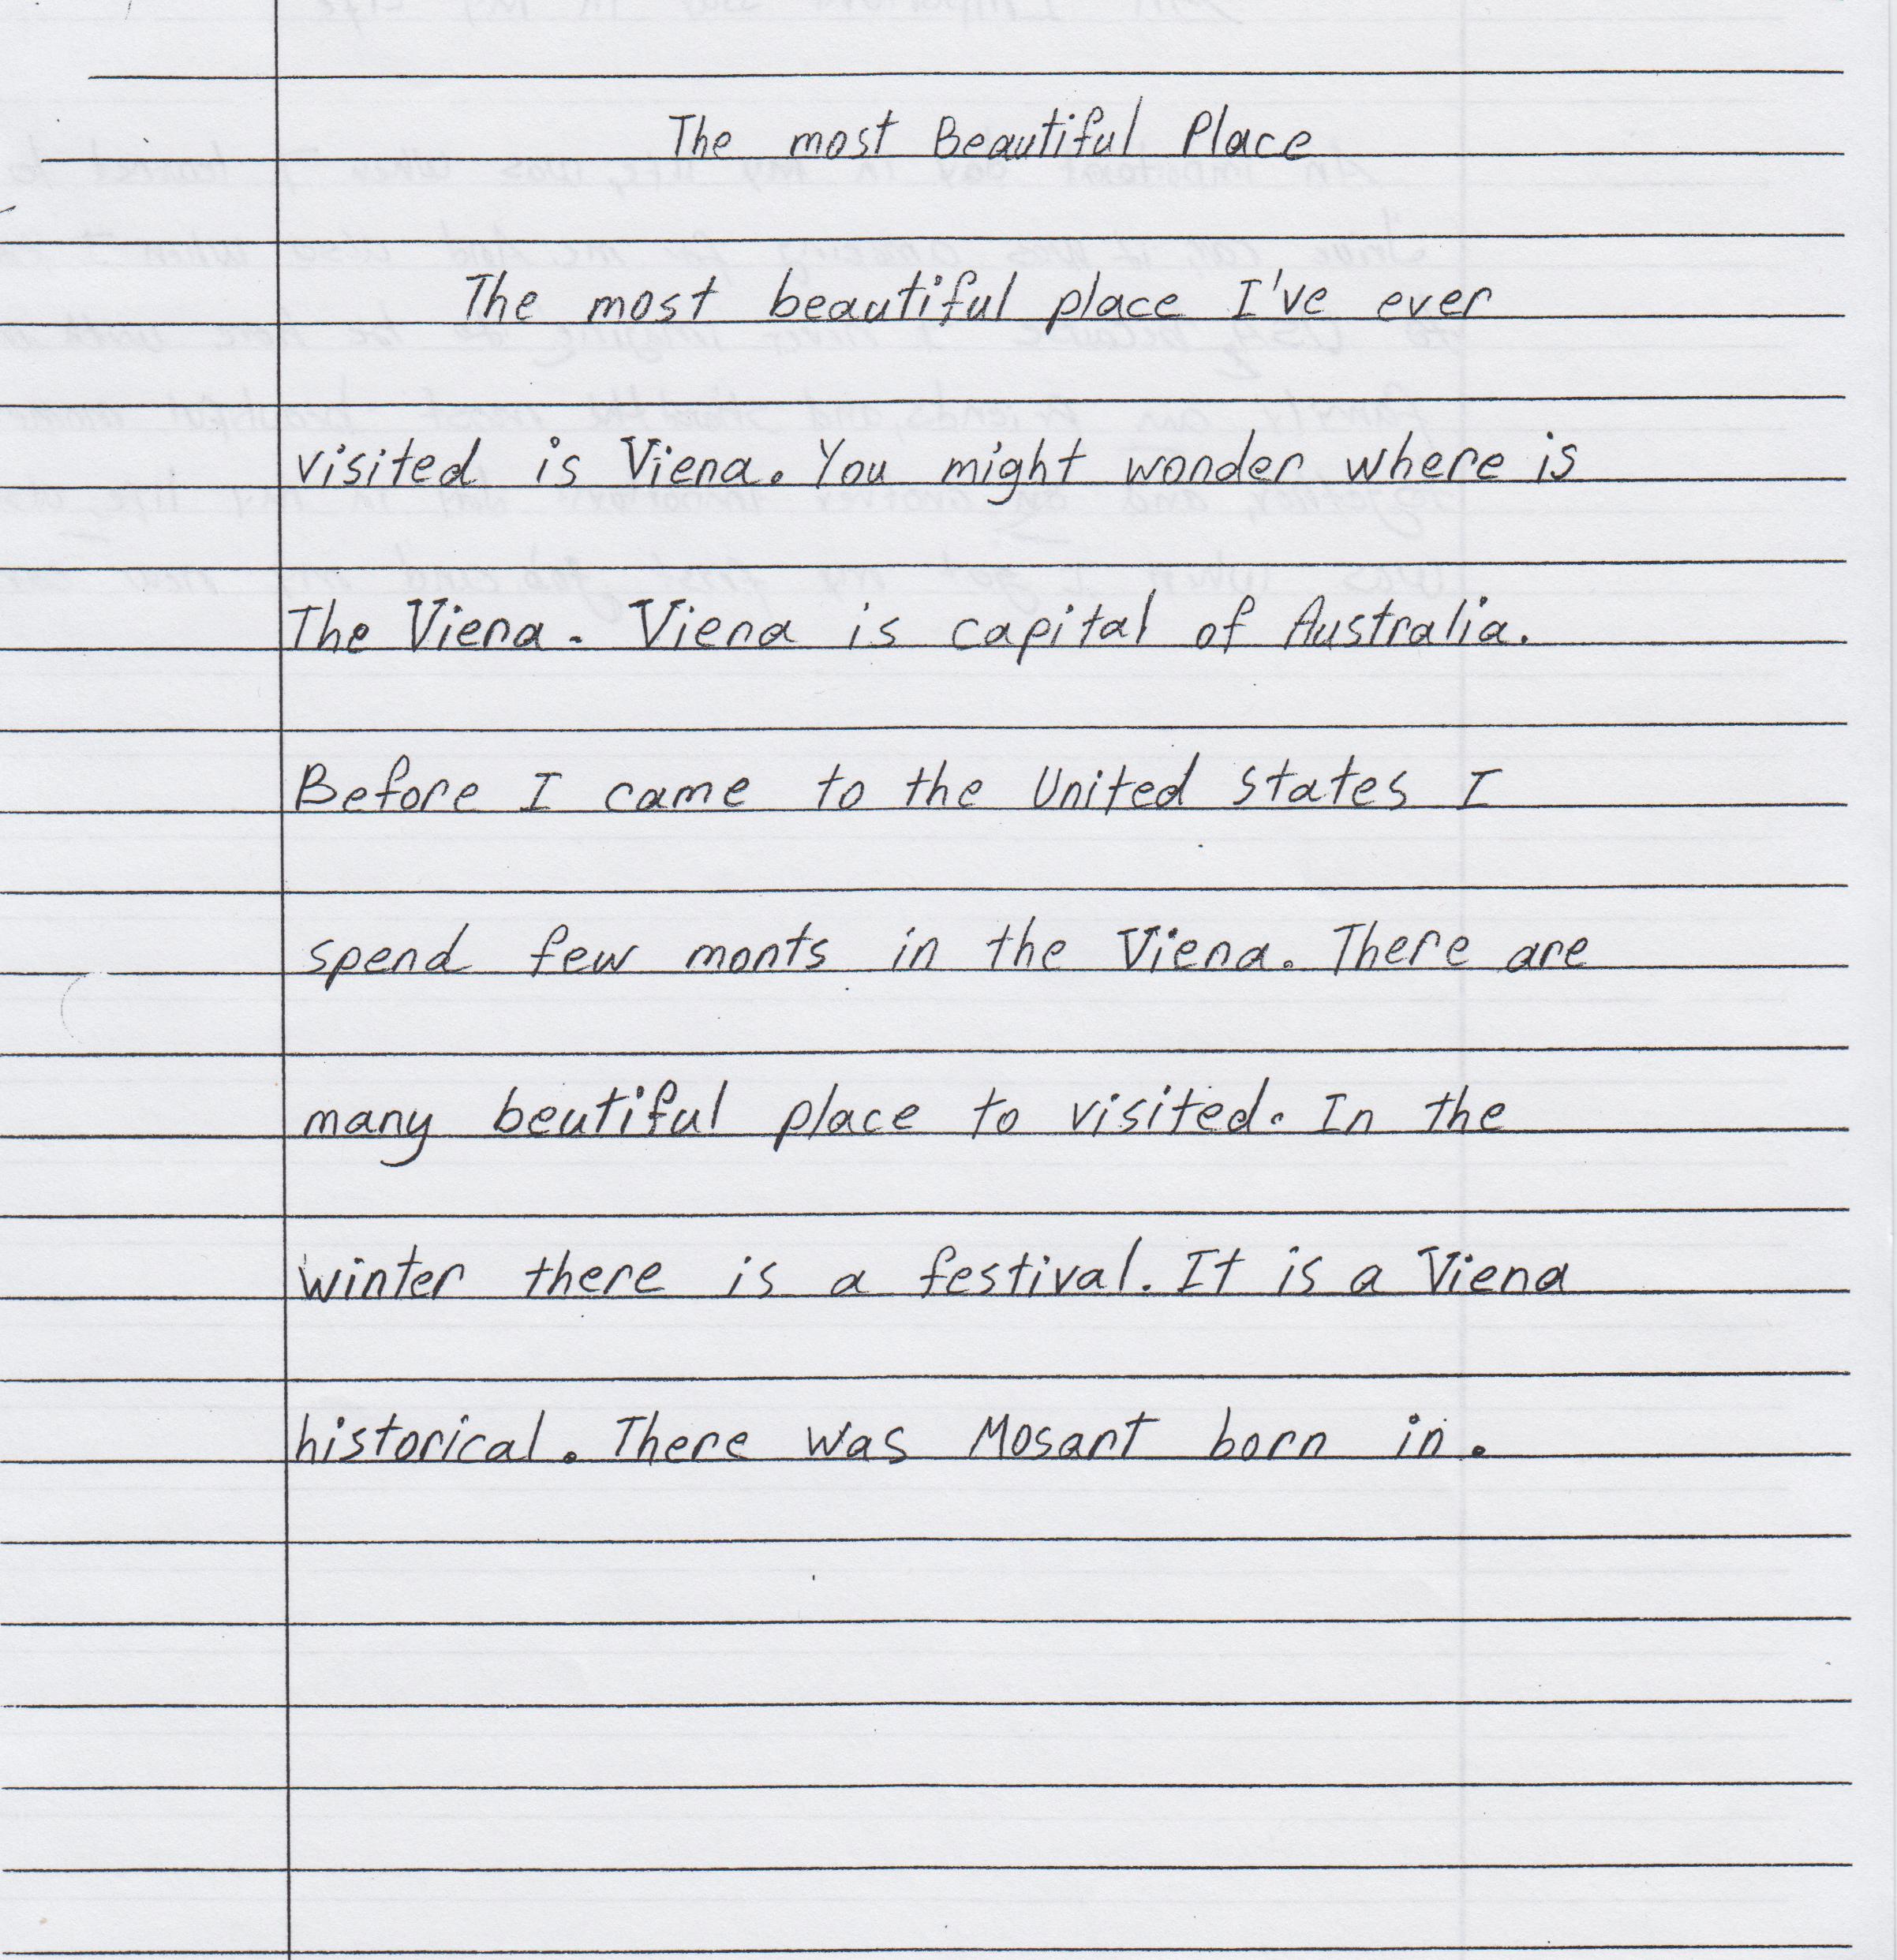 The most Beautiful Place
The most beautiful place I've ever
visited is Viena. You might wonder where is
The Viena. Viena is capital of Australia.
Before I came to the United States I
spend few monts in the Viena. There are
many beutiful place to visited. In the
winter there is a festival. It is a Viena
historical. There was Mosart born in.